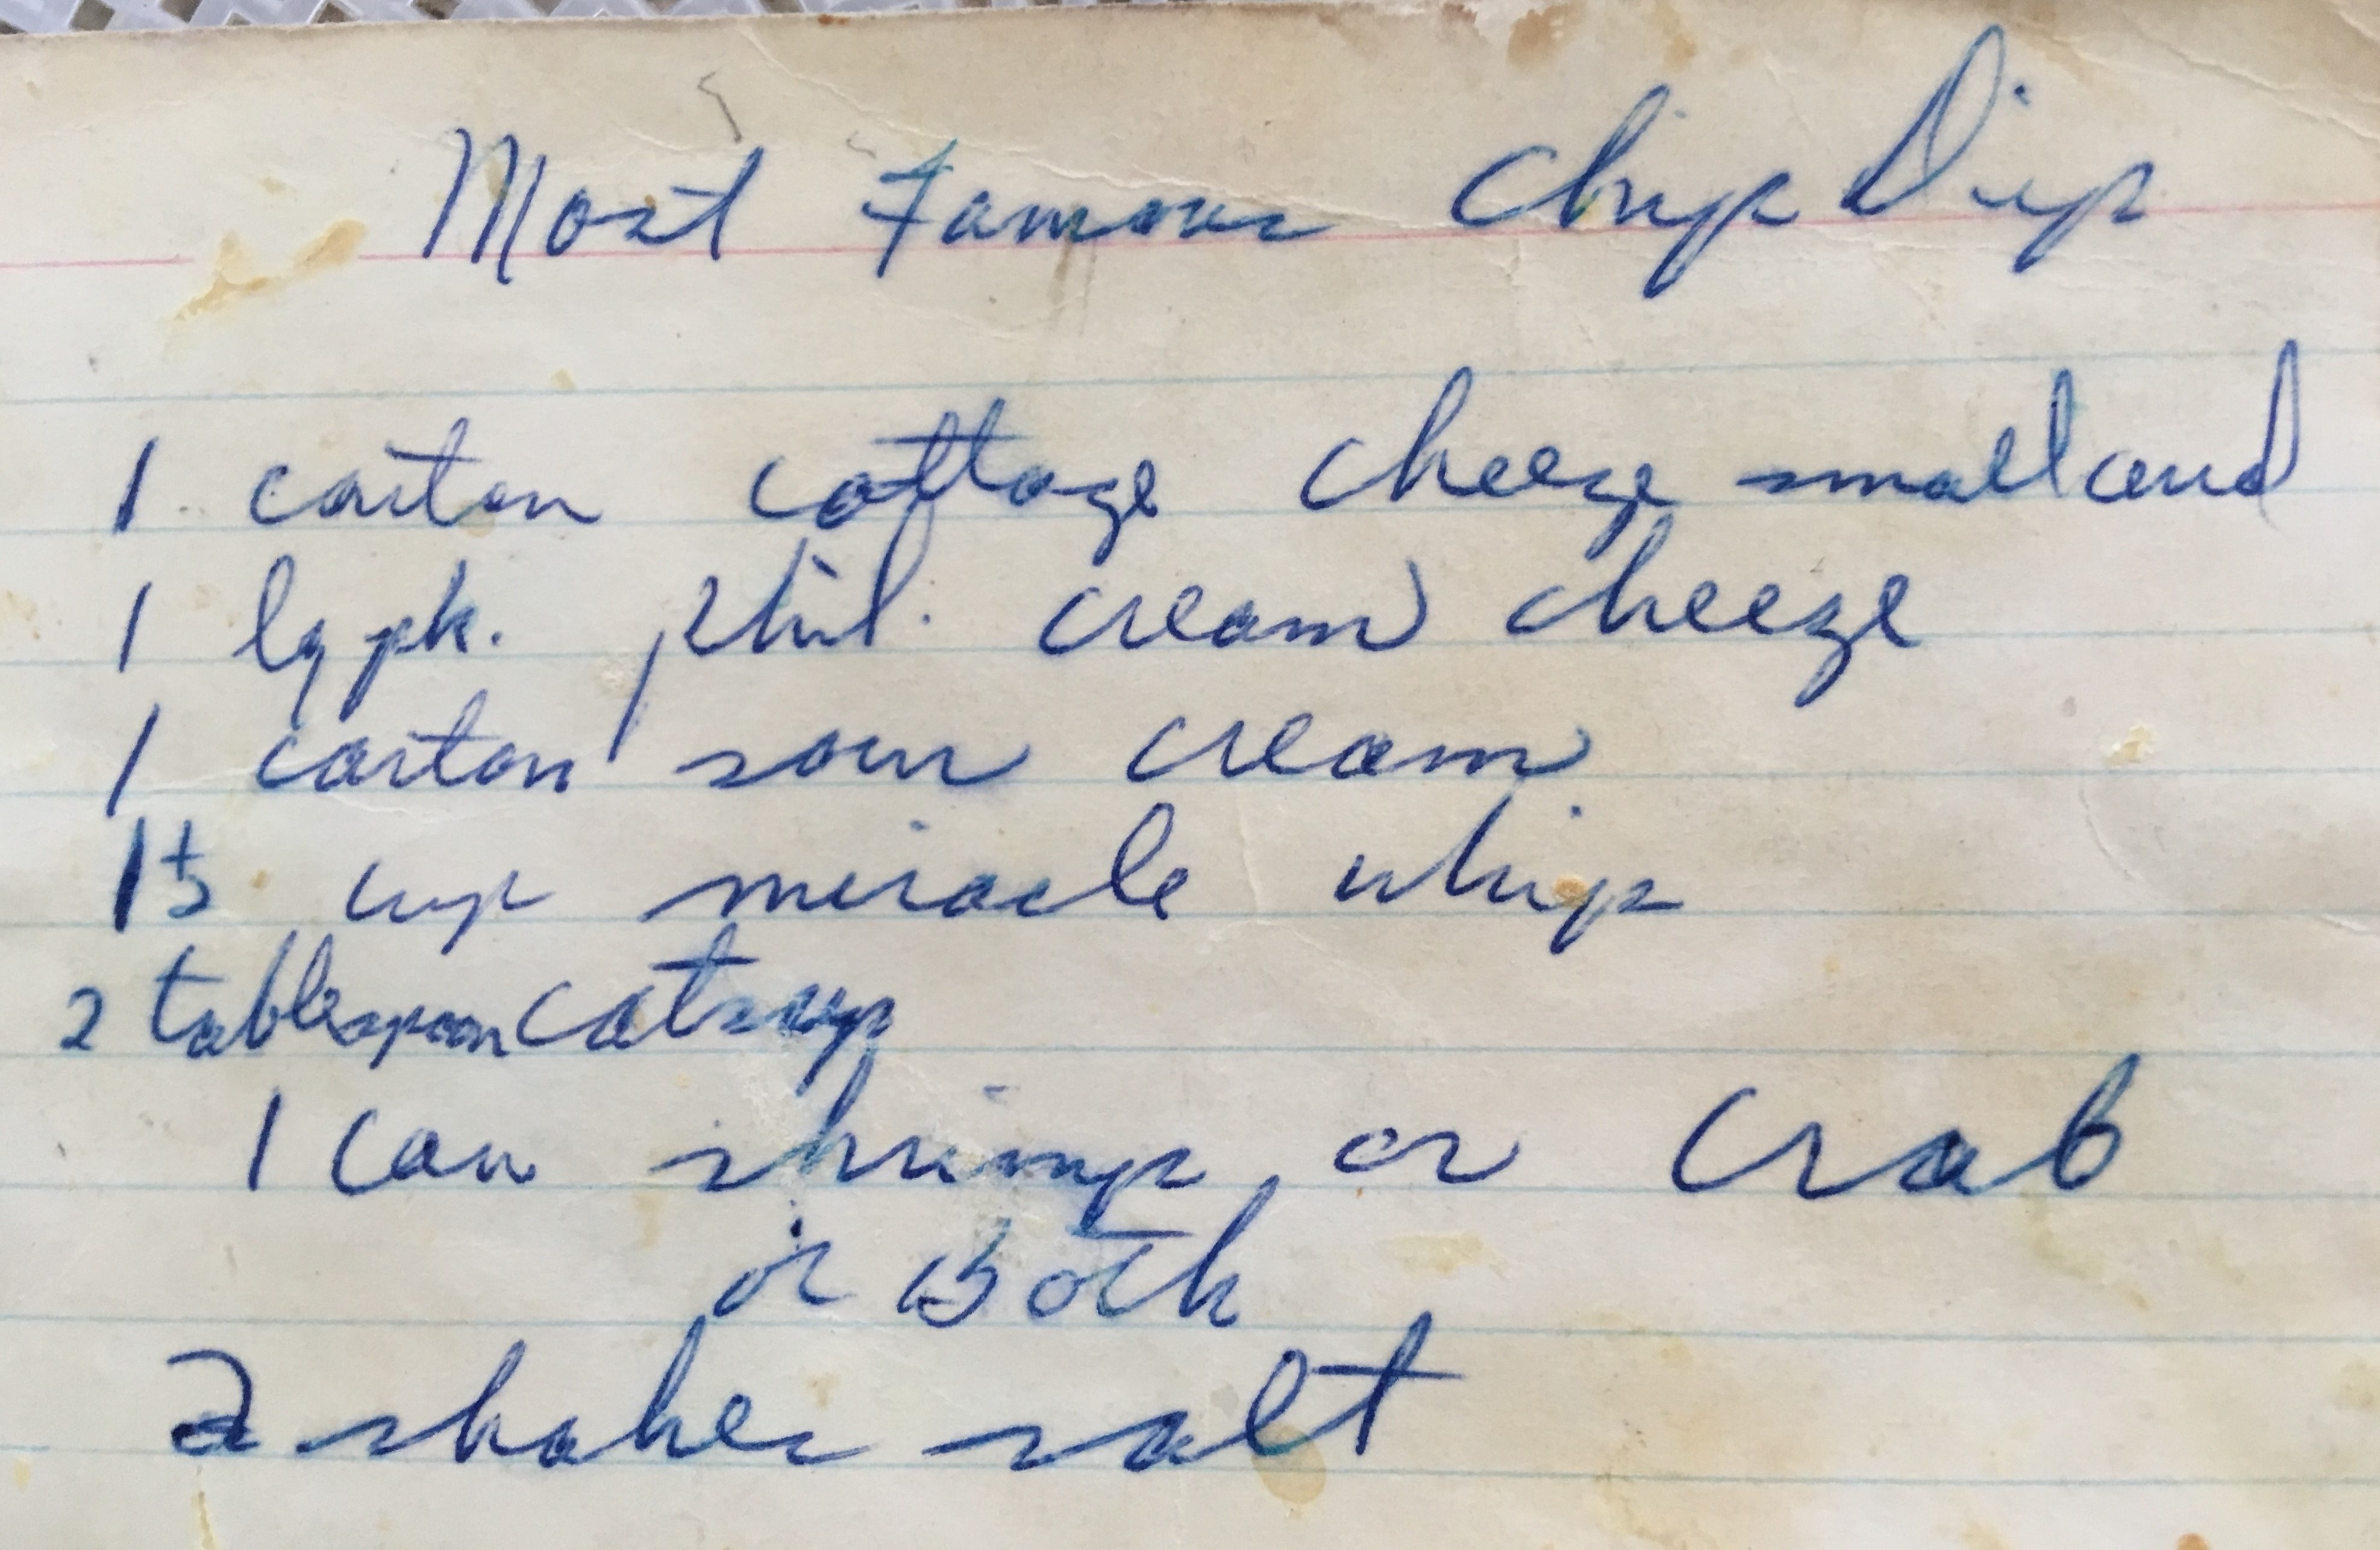 Most Famous Chip Dip
1 carton cottage cheeze small curd
1 lg pk. phil. cream cheeze
1 carton sour cream
cup miracle whip
2 tablespoon catsup
1 can shrimp or Crab
or Both
2 shakes salt